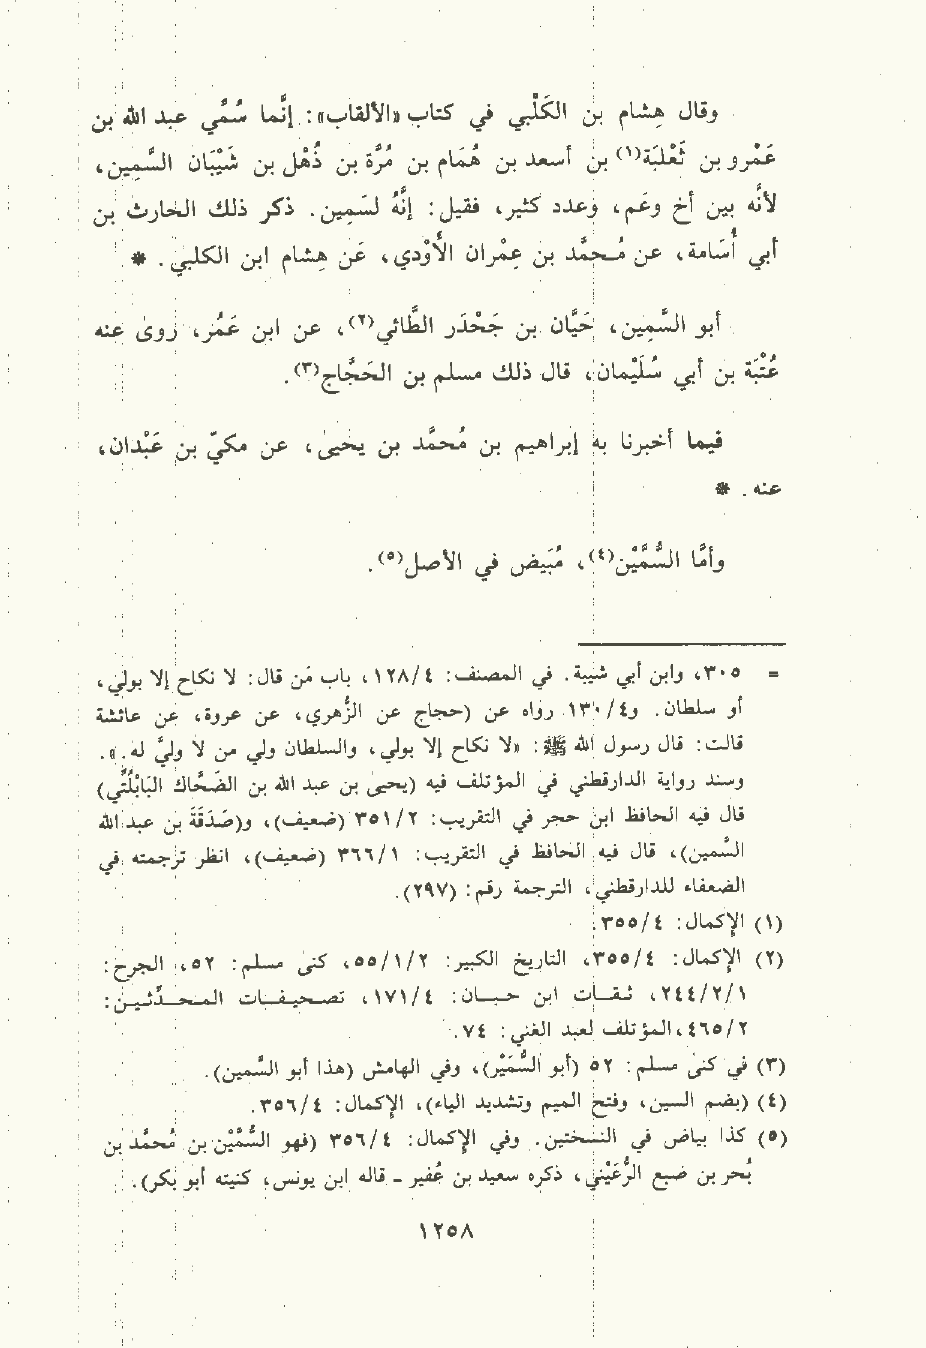 وقال هِشام بن الكَلْبي في كتاب «الألقاب»: إنَّما سُمِّي عبد الله بن
عَمْرو بن ثَعْلَبة(١) بن أسعد بن هُمَام بن مُرَّة بن ذُهْل بن شَيْبَان السَّمِين،
لأنَّه بين أخ وعَم، وعدد كثير، فقيل: إنَّهُ لسَمِين. ذكر ذلك الحارث بن
أبي أُسَامة، عن مُحمَّد بن عِمْران الأَوْدي، عَن هِشام ابن الكلبي. *
أبو السَّمِين، حَيَّان بن حَجْدَر الطَّائي(٢)، عن ابن عُمَر، روىٰ عنه
عُتْبَة بن أبي سُلَيْمان، قال ذلك مسلم بن الحَجَّاج(٣).
فيما أخبرنا به إبراهيم بن مُحمَّد بن يحيىٰ، عن مكيّ بن عَبْدان،
عنه. *
وأمَّا السُّمَّيْن(٤)، مُبَيض في الأصل(٥).
= ٣٠٥، وابن أبي شيبة. في المصنف: ١٢٨/٤، باب مَن قال: لا نكاح إلا بولي،
أو سلطان. و١٣٠/٤. رواه عن (حجاج عن الزُهري، عن عروة، عن عائشة
قالت: قال رسول الله ﷺ: «لا نكاح إلا بولي، والسلطان ولي من لا وليَّ له.».
وسند رواية الدارقطني في المؤتلف فيه (يحيىٰ بن عبد الله بن الضحَّاك البَابْلُتِّي)
قال فيه الحافظ ابن حجر في التقريب: ٣٥١/٢ (ضعيف)، و(صَدَقَة بن عبد الله
السَّمين)، قال فيه الحافظ في التقريب: ٣٦٦/١ (ضعيف)، انظر ترجمته في
الضعفاء للدارقطني، الترجمة رقم: (٢٩٧).
(١) الإكمال: ٣٥٥/٤.
(٢) الإكمال: ٣٥٥/٤، التاريخ الكبير: ٥٥/١/٢، كنى مسلم: ٥٢، الجرح:
٢٤٤/٢/١، ثقات ابن حبان: ١٧١/٤، تصحيفات المحدِّثين:
٤٦٥/٢، المؤتلف لعبد الغني: ٧٤.
(٣) في كنىٰ مسلم: ٥٢ (أبو السُّمَيْر)، وفي الهامش (هذا أبو السَّمين).
(٤) (بضم السين، وفتح الميم وتشديد الياء)، الإكمال: ٣٥٦/٤.
(٥) كذا بياض في النسختين. وفي الإكمال: ٣٥٦/٤ (فهو السُّمَّيْن بن مُحمَّد بن
بُحر بن ضبع الرُّعَيْني، ذكره سعيد بن عُفير - قاله ابن يونس، كنيته أبو بكر).
١٢٥٨